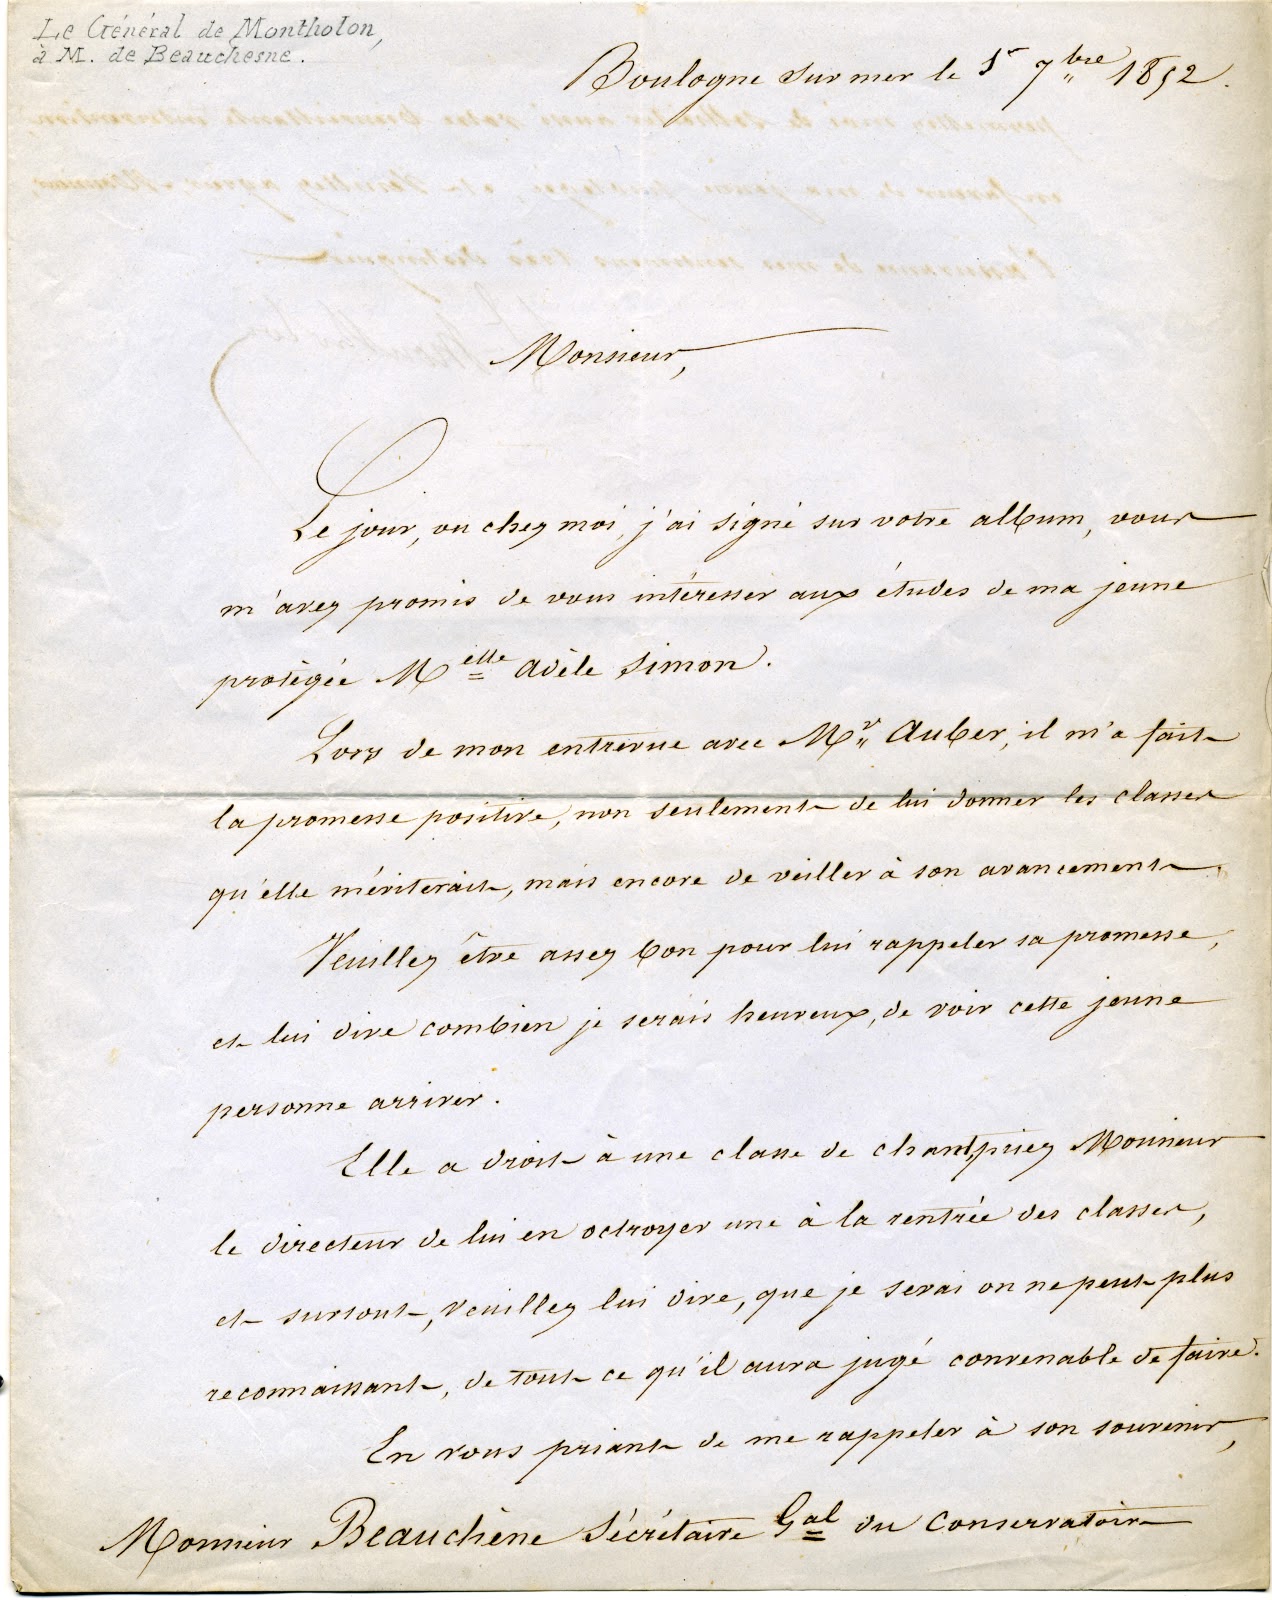 Le Général de Montholon,
à M. de Beauchesne.
Boulogne sur mer le 1r 7bre 1852.
Monsieur,
Le jour, ou chez moi, j'ai signé sur votre album, vous
m'avez promis de vous intéresser aux études de ma jeune
protègée Melle Adèle Simon.
Lors de mon entrevue avec Mr Auber, il m'a fait
la promesse positive, non seulement de lui donner les classes
qu'elle mériterait, mais encore de veiller à son avancement.
Veuillez être assez bon pour lui rappeler sa promesse,
et lui dire combien je serais heureux, de voir cette jeune
personne arriver.
Elle a droit à une classe de chant, priez Monsieur
le directeur de lui en octroyer une à la rentrée des classes,
et surtout, veuillez lui dire, que je serai on ne peut plus
reconnaissant, de tout ce qu'il aura jugé convenable de faire.
En vous priant de me rappeler à son souvenir,
Monsieur Beauchène Sécrétaire Gal du Conservatoire